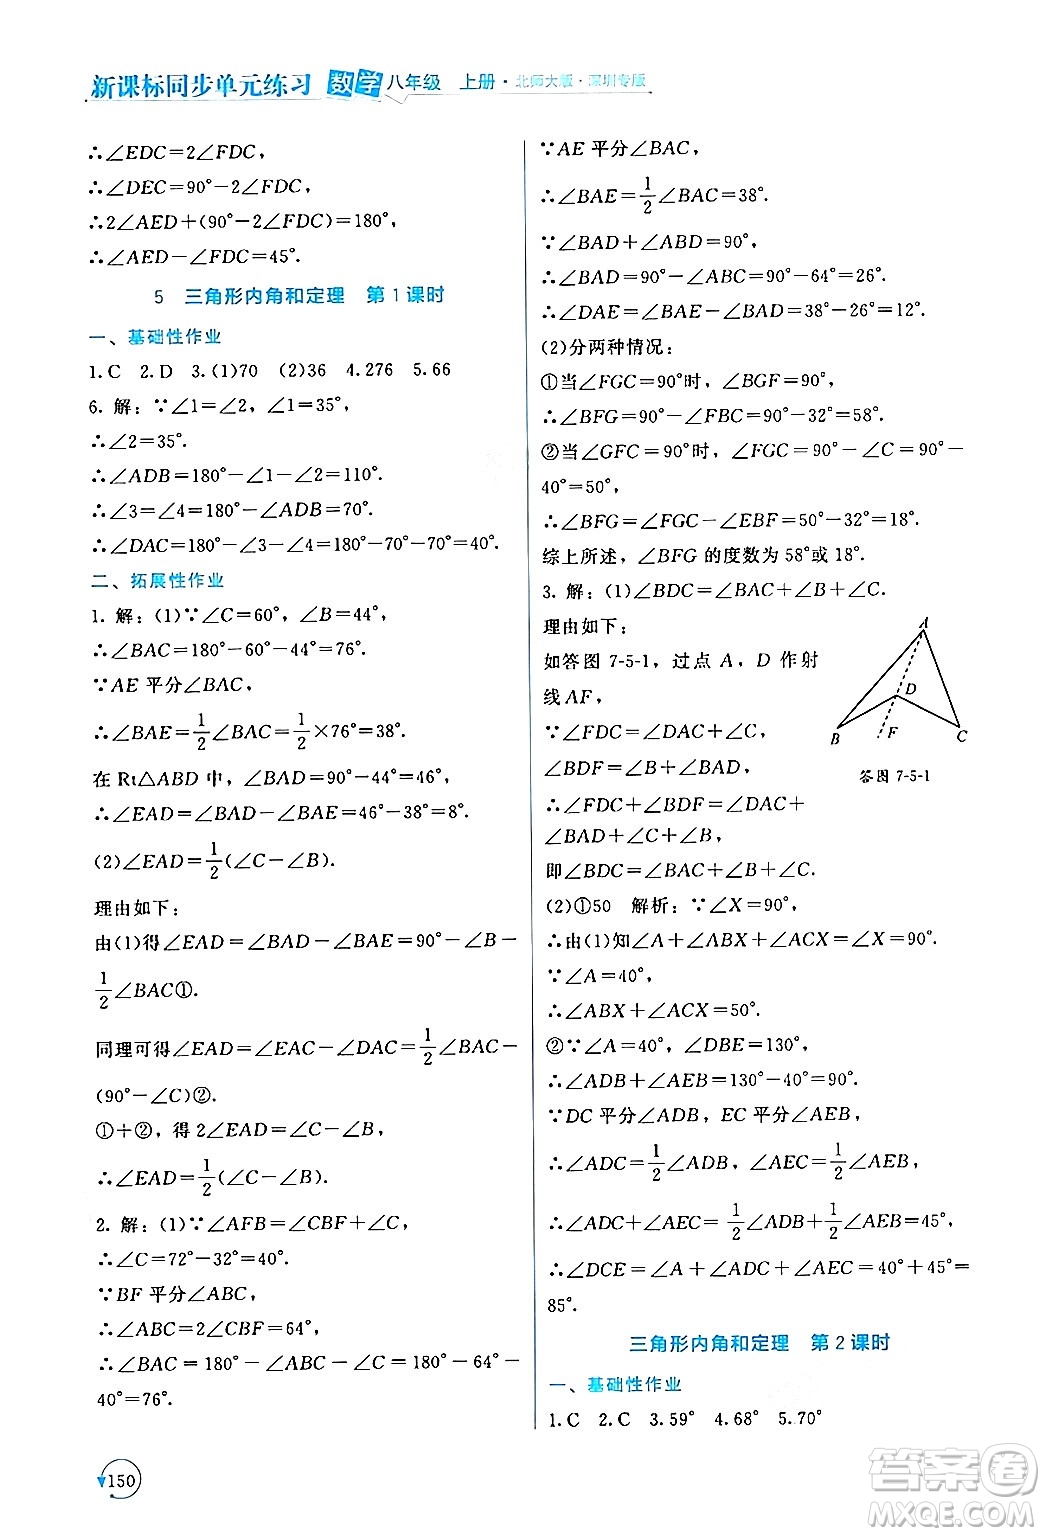 新课标同步单元练习 数学 八年级 上册·北师大版·深圳专版
∴∠EDC=2∠FDC,
∴∠DEC=90°-2∠FDC,
∴2∠AED+(90°-2∠FDC)=180°,
∴∠AED-∠FDC=45°.
5 三角形内角和定理 第1课时
一、基础性作业
1.C 2.D 3.(1)70 (2)36 4.276 5.66
6. 解：∵∠1=∠2, ∠1=35°,
∴∠2=35°.
∴∠ADB=180°-∠1-∠2=110°.
∴∠3=∠4=180°-∠ADB=70°.
∴∠DAC=180°-∠3-∠4=180°-70°-70°=40°.
二、拓展性作业
1. 解：(1)∵∠C=60°, ∠B=44°,
∴∠BAC=180°-60°-44°=76°.
∵AE 平分∠BAC,
∴∠BAE=1/2∠BAC=1/2×76°=38°.
在 Rt△ABD 中, ∠BAD=90°-44°=46°,
∴∠EAD=∠BAD-∠BAE=46°-38°=8°.
(2)∠EAD=1/2(∠C-∠B).
理由如下：
由(1)得∠EAD=∠BAD-∠BAE=90°-∠B-
1/2∠BAC①.
同理可得∠EAD=∠EAC-∠DAC=1/2∠BAC-
(90°-∠C)②.
①+②, 得 2∠EAD=∠C-∠B,
∴∠EAD=1/2(∠C-∠B).
2. 解：(1)∵∠AFB=∠CBF+∠C,
∴∠C=72°-32°=40°.
∵BF 平分∠ABC,
∴∠ABC=2∠CBF=64°,
∴∠BAC=180°-∠ABC-∠C=180°-64°-
40°=76°.
∵AE 平分∠BAC,
∴∠BAE=1/2∠BAC=38°.
∵∠BAD+∠ABD=90°,
∴∠BAD=90°-∠ABD=90°-64°=26°,
∴∠DAE=∠BAE-∠BAD=38°-26°=12°.
(2)分两种情况：
①当∠FGC=90°时, ∠BGF=90°,
∴∠BFG=90°-∠FBG=90°-32°=58°.
②当∠GFC=90°时, ∠FGC=90°-∠C=90°-
40°=50°,
∴∠BFG=∠FGC-∠EBF=50°-32°=18°.
综上所述, ∠BFG 的度数为 58°或 18°.
3. 解：(1)∠BDC=∠BAC+∠B+∠C.
理由如下：
如答图 7-5-1, 过点 A, D 作射
线 AF,
∵∠FDC=∠DAC+∠C,
∠BDF=∠B+∠BAD,
∴∠FDC+∠BDF=∠DAC+
∠BAD+∠C+∠B,
即∠BDC=∠BAC+∠B+∠C.
A
D
B
F
C
答图 7-5-1
(2)①50 解析：∵∠X=90°,
∴由(1)知∠A+∠ABX+∠ACX=∠X=90°.
∵∠A=40°,
∴∠ABX+∠ACX=50°.
②∵∠A=40°, ∠DBE=130°,
∴∠ADB+∠AEB=130°-40°=90°.
∵DC 平分∠ADB, EC 平分∠AEB,
∴∠ADC=1/2∠ADB, ∠AEC=1/2∠AEB,
∴∠ADC+∠AEC=1/2∠ADB+1/2∠AEB=45°,
∴∠DCE=∠A+∠ADC+∠AEC=40°+45°=
85°.
三角形内角和定理 第2课时
一、基础性作业
1.C 2.C 3.59° 4.68° 5.70°
150
答案圈
MXQE.COM